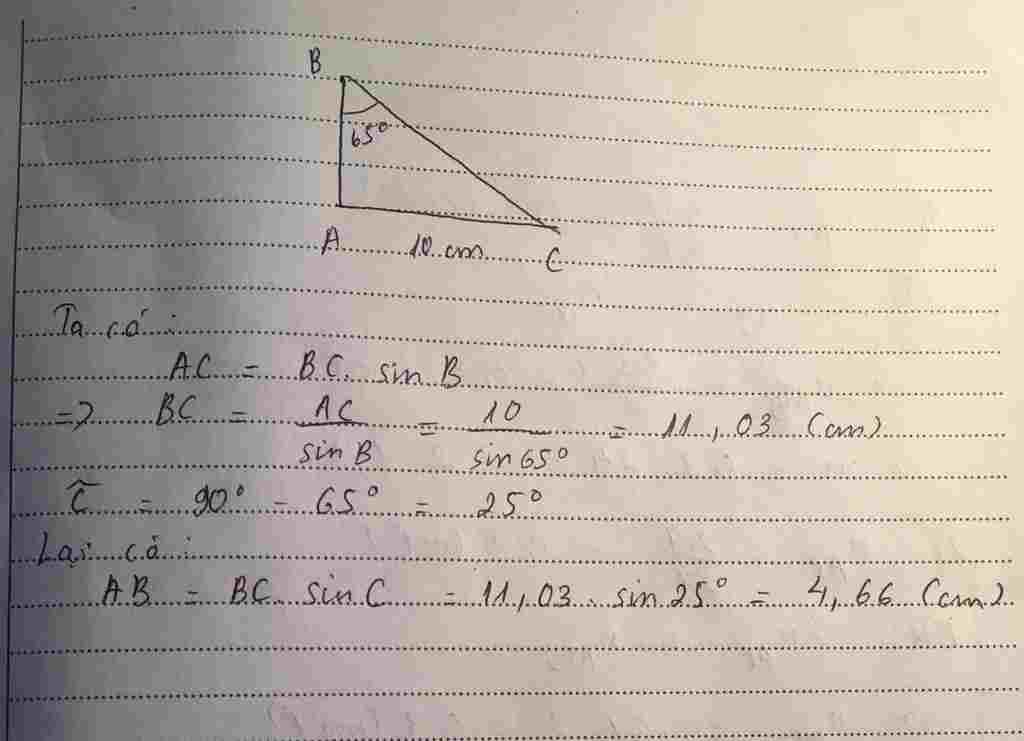 B
65°
A 10 cm C
Ta có :
AC = BC. sin B
=> BC = AC / sin B = 10 / sin 65° = 11,03 (cm)
Ĉ = 90° - 65° = 25°
Lại có :
AB = BC. sin C = 11,03 . sin 25° = 4,66 (cm)